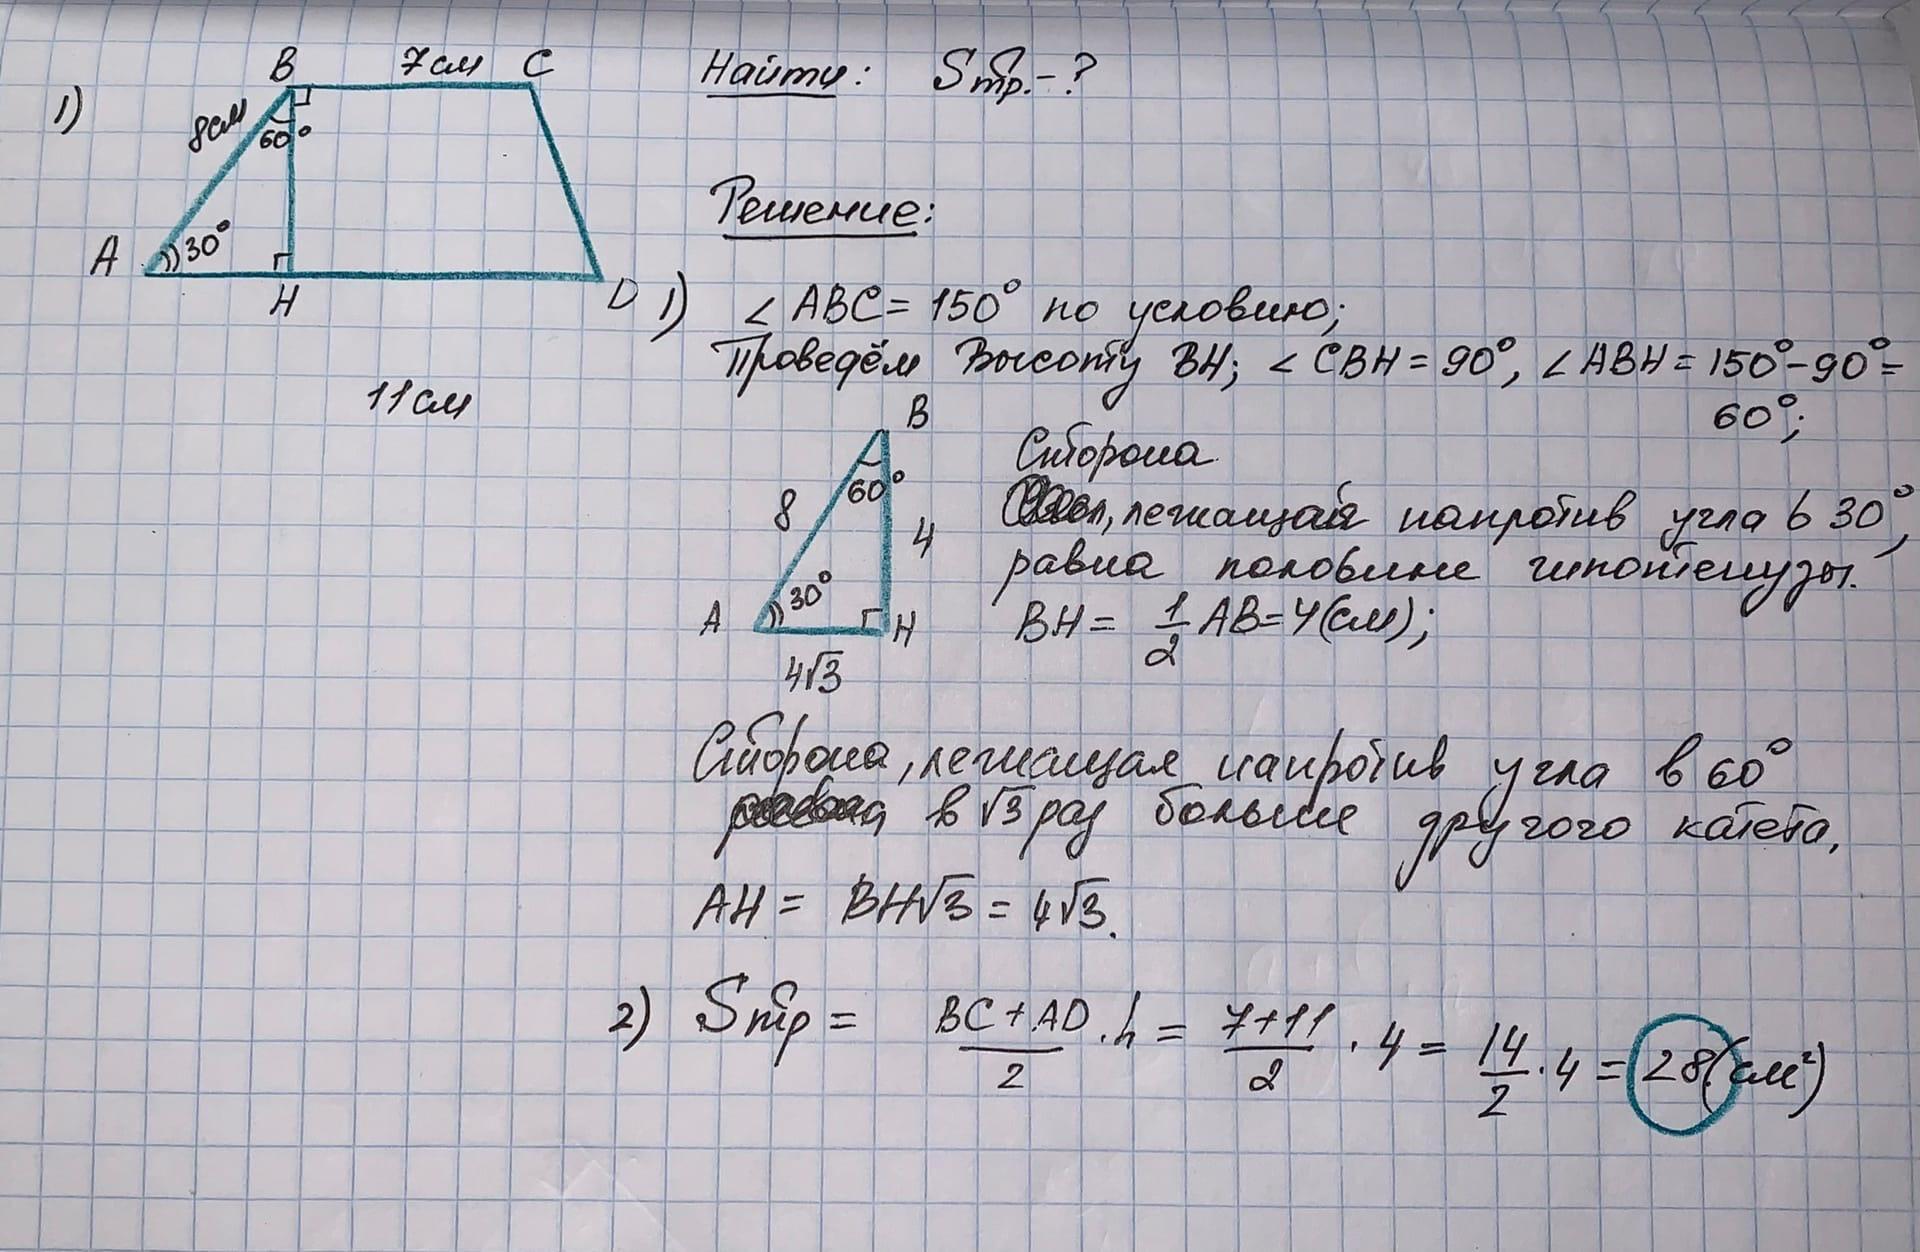 1)
B 7см C
8см
60°
A 30°
H
D
11см
Найти: Sтр. - ?
Решение:
1) ∠ABC = 150° по условию;
Проведём высоту BH; ∠CBH = 90°, ∠ABH = 150° - 90° =
60°;
B
60°
8
4
30°
A
H
4√3
Сторона
, лежащая напротив угла в 30°,
равна половине гипотенузы.
BH = 1/2 AB = 4(см);
Сторона, лежащая напротив угла в 60°
в √3 раз больше другого катета.
AH = BH√3 = 4√3.
2) Sтр = (BC + AD)/2 · h = (7+11)/2 · 4 = 14/2 · 4 = 28(см²)